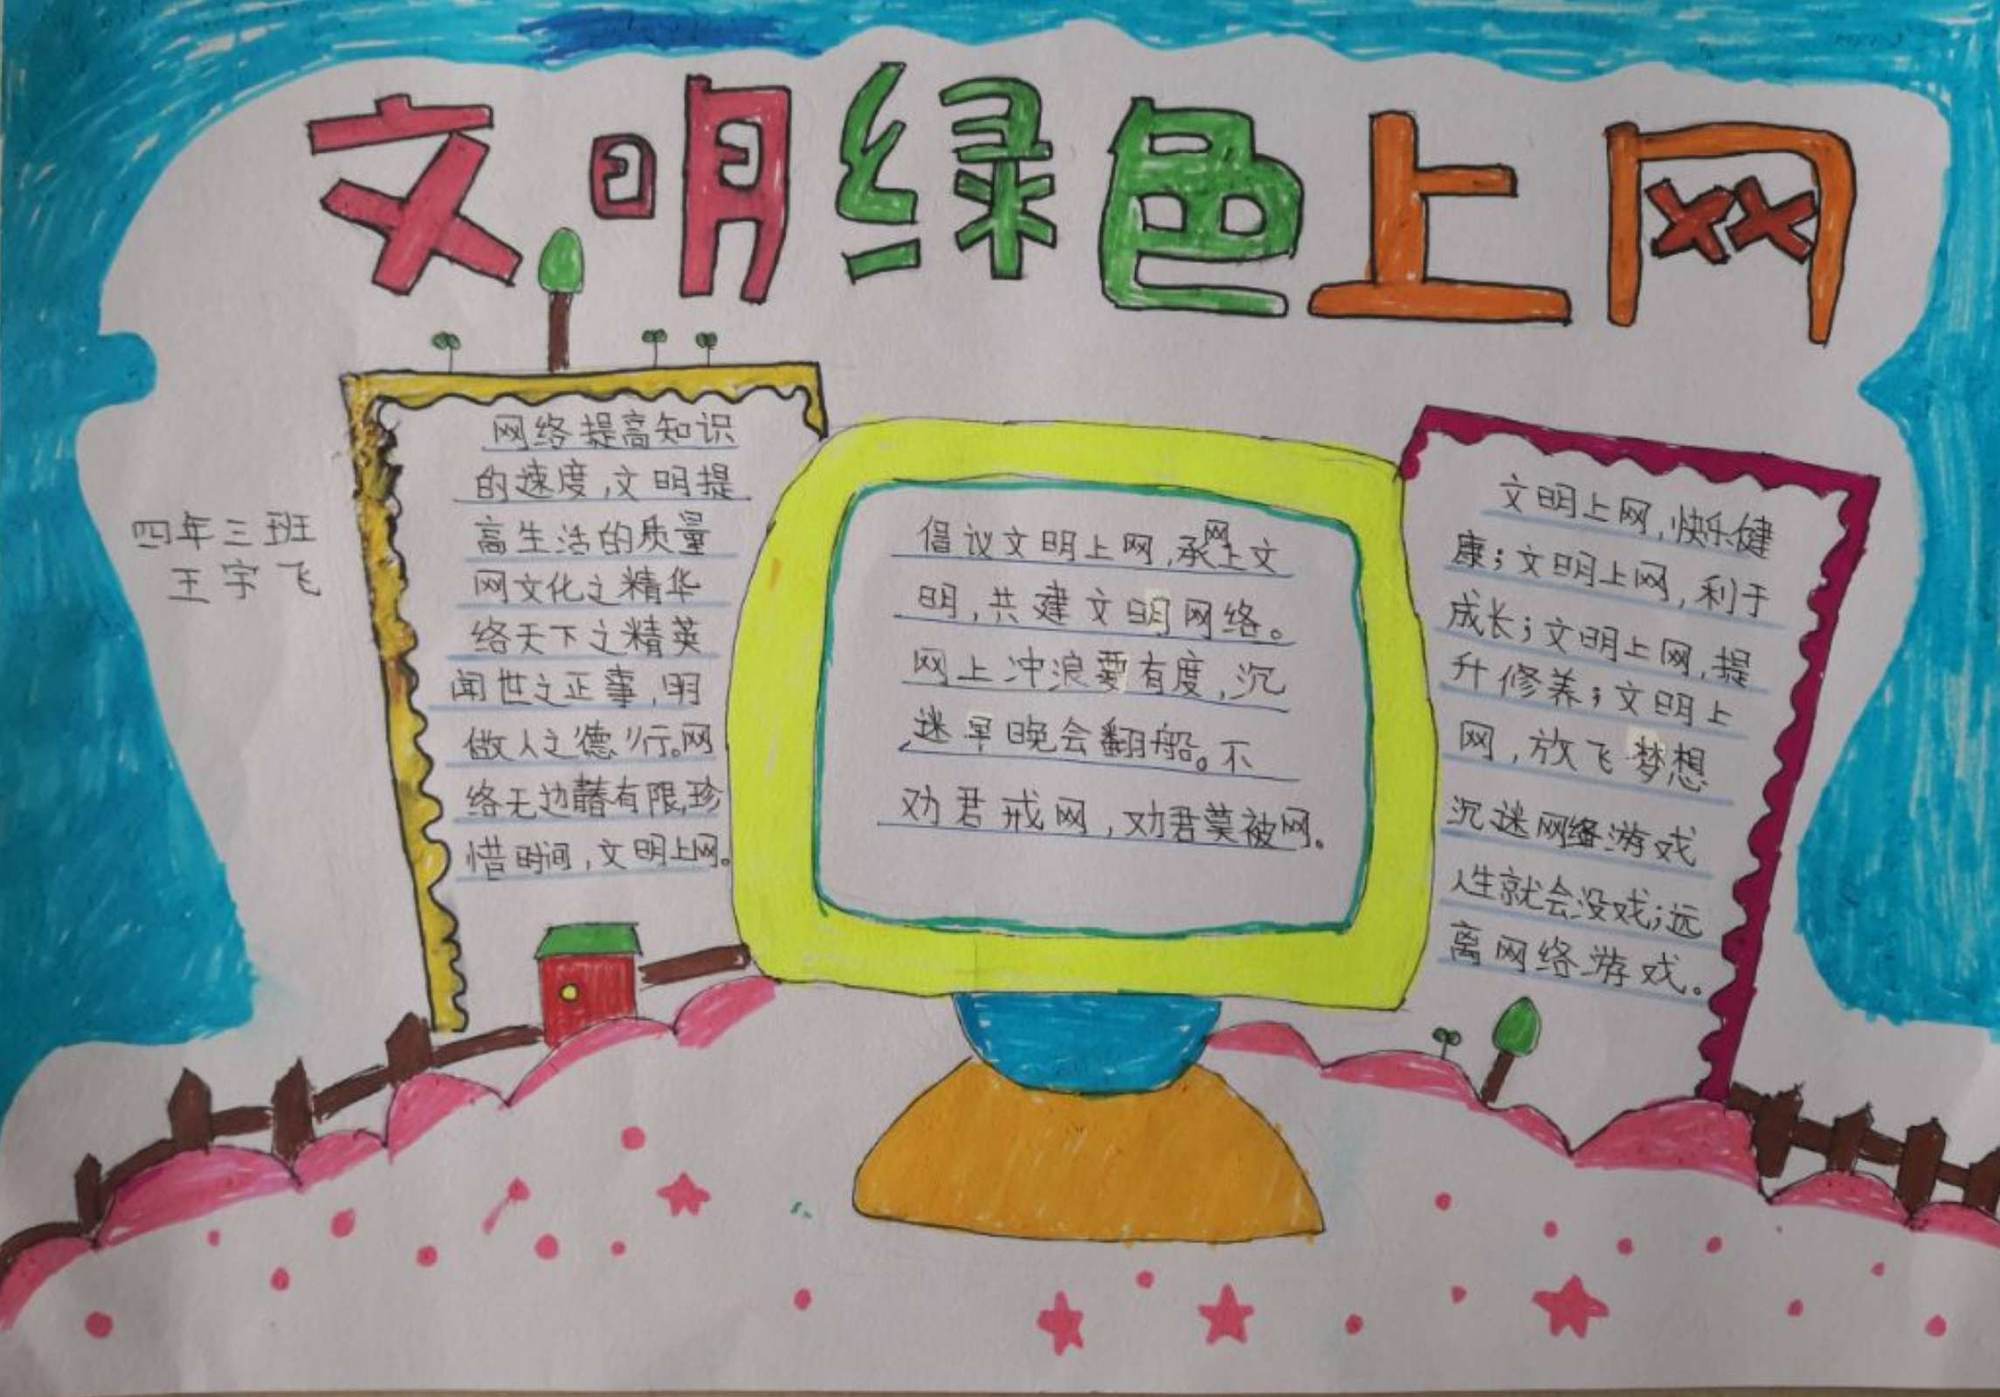 文明绿色上网
四年三班
王宇飞
网络提高知识
的速度,文明提
高生活的质量
网文化之精华
络天下之精英
闻世之正事,明
做人之德行。网
络无边有限,珍
惜时间,文明上网。
倡议文明上网,承网上文
明,共建文明网络。
网上冲浪要有度,沉
迷早晚会翻船。不
劝君戒网,劝君莫被网。
文明上网,快乐健
康;文明上网,利于
成长;文明上网,提
升修养;文明上
网,放飞梦想
沉迷网络游戏
人生就会没戏;远
离网络游戏。